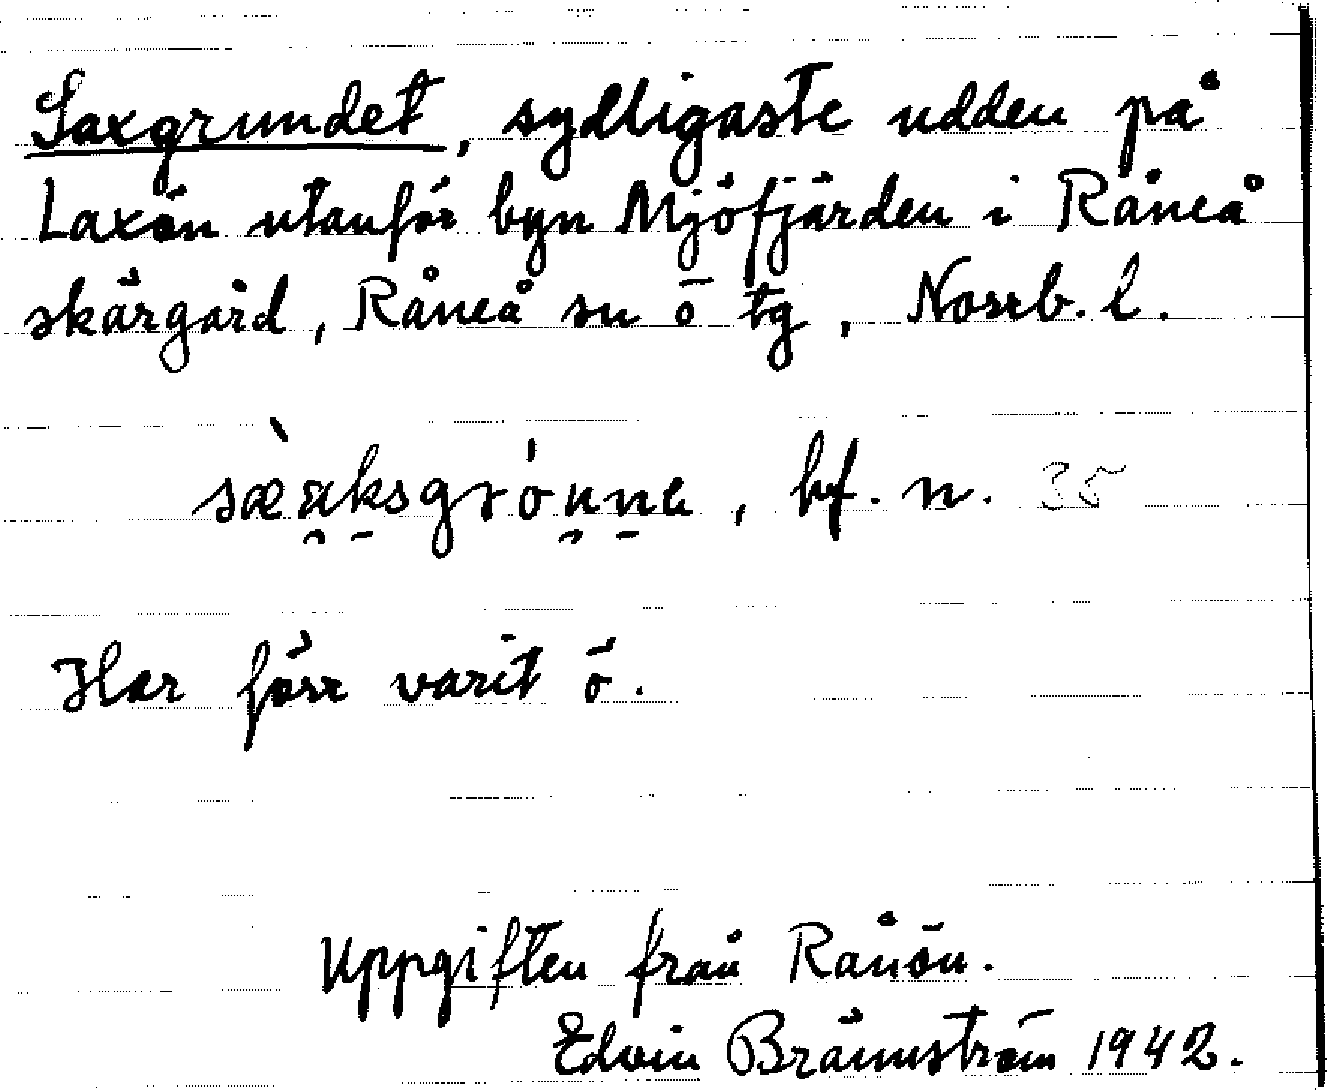 Saxgrundet, sydligaste udden på
Laxön utanför byn Mjöfjärden i Råneå
skärgård, Råneå sn ö tg, Norrb. l.
sæ̀ạksgrónne, bf. n. 35
Har förr varit ö.
Uppgiften från Rånön.
Edvin Brännström 1942.